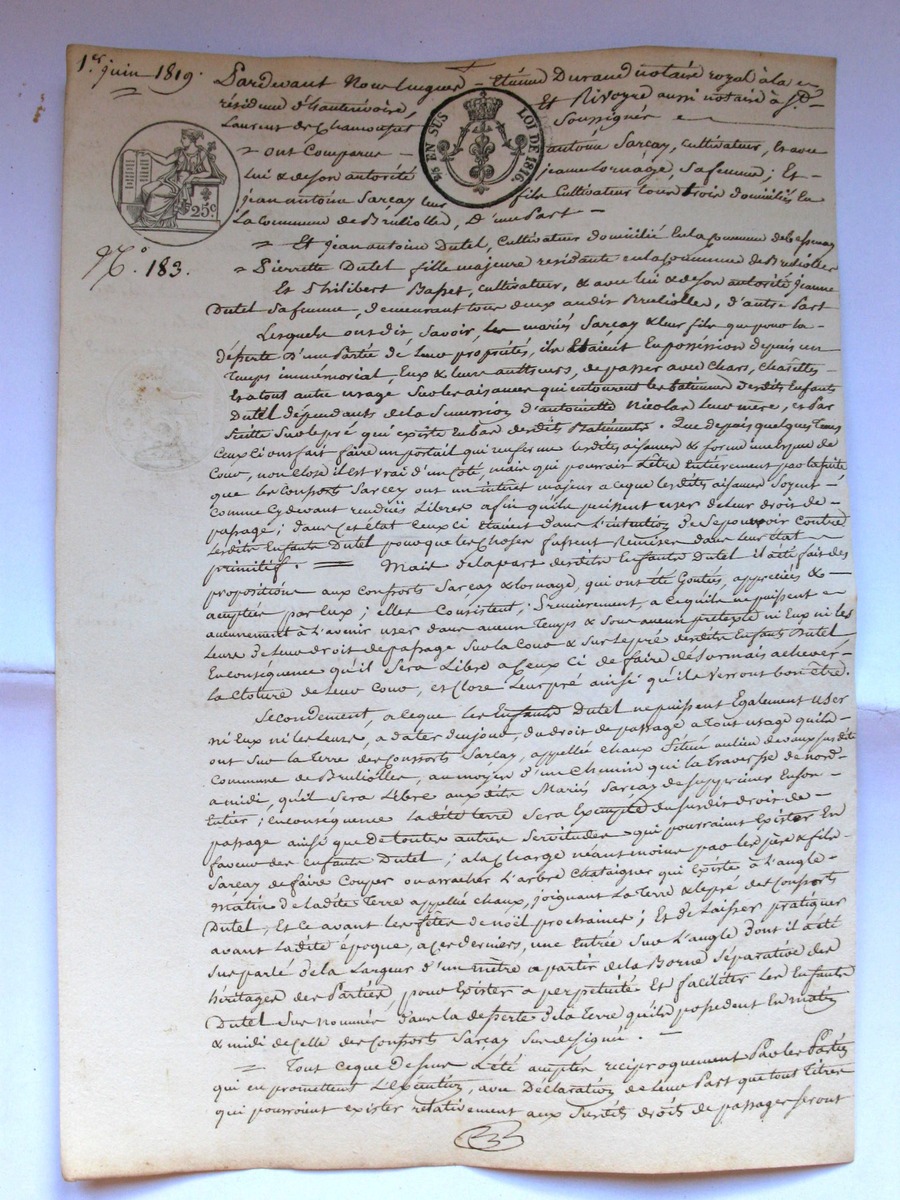 1er juin 1819.
Pardevant Nous Lucques Etienne Durand notaire royal à la
résidence d'hauterivoire, Et Rivoyre aussi notaire à St
Laurent de Chamousset Soussignés
EN SUS LOI DE 1816.
25c
= ont Comparu antoine Sarcay, Cultivateur, Et avec
lui & de son autorité jeanne Lornage, Sa femme; Et
jean antoine Sarcay leur fils Cultivateur tous trois domiciliés En
La Commune de Brullioles, D'une Part —
N.° 183.
= Et jean antoine Dutel, Cultivateur domicilié En la Commune de Bessenay
= Pierrette Dutel fille majeure residante en la Commune de Brullioles
Et Philibert Basset, Cultivateur, & avec lui & de son autorité jeanne
Dutel Sa femme, demeurant tous deux audit Brullioles, d'autre Part
Lesquels ont dit, Savoir, les mariés Sarcay & leur fils que pour la
déserte d'une Partie de leurs propriétés, ils Etaient En possession depuis un
Temps immémorial, Eux & leurs autheurs, de passer avec Chars, Charettes
Et a tout autre usage Sur les aisances qui entourent les batiments desdits Enfants
Dutel dépendants de la Succession d'antoinette Nicolas leur mère, et Par
Suite Sur le pré qui existe En bas desdits Batiments. Que depuis quelques Tems
Ceux Ci ont fait faire un portail qui renferme lesdites aisances & forme une Espece de
Cour, non Close il est vrai d'un Coté, mais qui pourrait L'être Entièrement par la Suite
que les Consorts Sarcay ont un interet majeur a ce que lesdites aisances Soyent
Comme Cydevant rendües Libres afin qu'ils puissent user de leur droit de
passage; dans Cet état Ceux Ci étaient dans L'intention de Se pourvoir Contre
lesdits Enfants Dutel pour que les Choses fussent Remises dans leur état
primitif. = Mais de la part desdits Enfants Dutel il a été fait des
propositions aux Consorts Sarcay & Lornage, qui ont été Goutés, appréciés &
acceptées par Eux; elles Consistent; Premièrement, a ce qu'ils ne puissent
aucunement à l'avenir user dans aucun Temps & Sous aucun prétexte ni Eux ni les
Leurs de leur droit de passage Sur la Cour & Sur le pré desdits Enfants Dutel
En conséquence qu'il Sera Libre a Ceux Ci de faire désormais achever
La Cloture de leur Cour, et Clore Leur pré ainsi qu'ils Verront bon être.
Secondement, a ce que les Enfants Dutel ne puissent Egalement user
ni Eux ni les Leurs, a dater du jour, du droit de passage a Tout usage qu'ils
ont Sur la Terre des Consorts Sarcay, appellée Chaux Situé au lieu de susdite
Commune de Brullioles, au moyen d'un Chemin qui la traverse de nord
a midi, qu'il Sera Libre auxdits Mariés Sarcay de Supprimer En Son
Entier; En consequence ladite terre Sera Exempte du susdit droit de
passage ainsi que de toutes autres Servitudes qui pourraient Exister En
faveur des Enfants Dutel; a la Charge néantmoins par les père & fils
Sarcay de faire Couper ou arracher L'arbre Chataignier qui Existe à L'angle
matin de ladite Terre appellé Chaux, joignant La Terre & le pré des Consorts
Dutel, Et ce avant les fêtes de noël prochaines; Et de Laisser pratiquer
avant Ladite époque, a Ces derniers, une Entrée Sur L'angle dont il a été
Sus parlé de la Largeur d'un mètre a partir de la Borne Séparative des
héritages des Parties, pour Exister a perpetuité Et faciliter les Enfants
Dutel Sus nommés dans la desserte de la Terre qu'ils possedent En matin
& midi de Celle des Consorts Sarcay Sus designée. —
= Tout Ce que dessus a été accepté reciproquement Par les Parties
qui en promettent L'Execution, avec Déclaration de leur Part que tout Titres
qui pourroient exister relativement aux Susdits droits de passages Seront